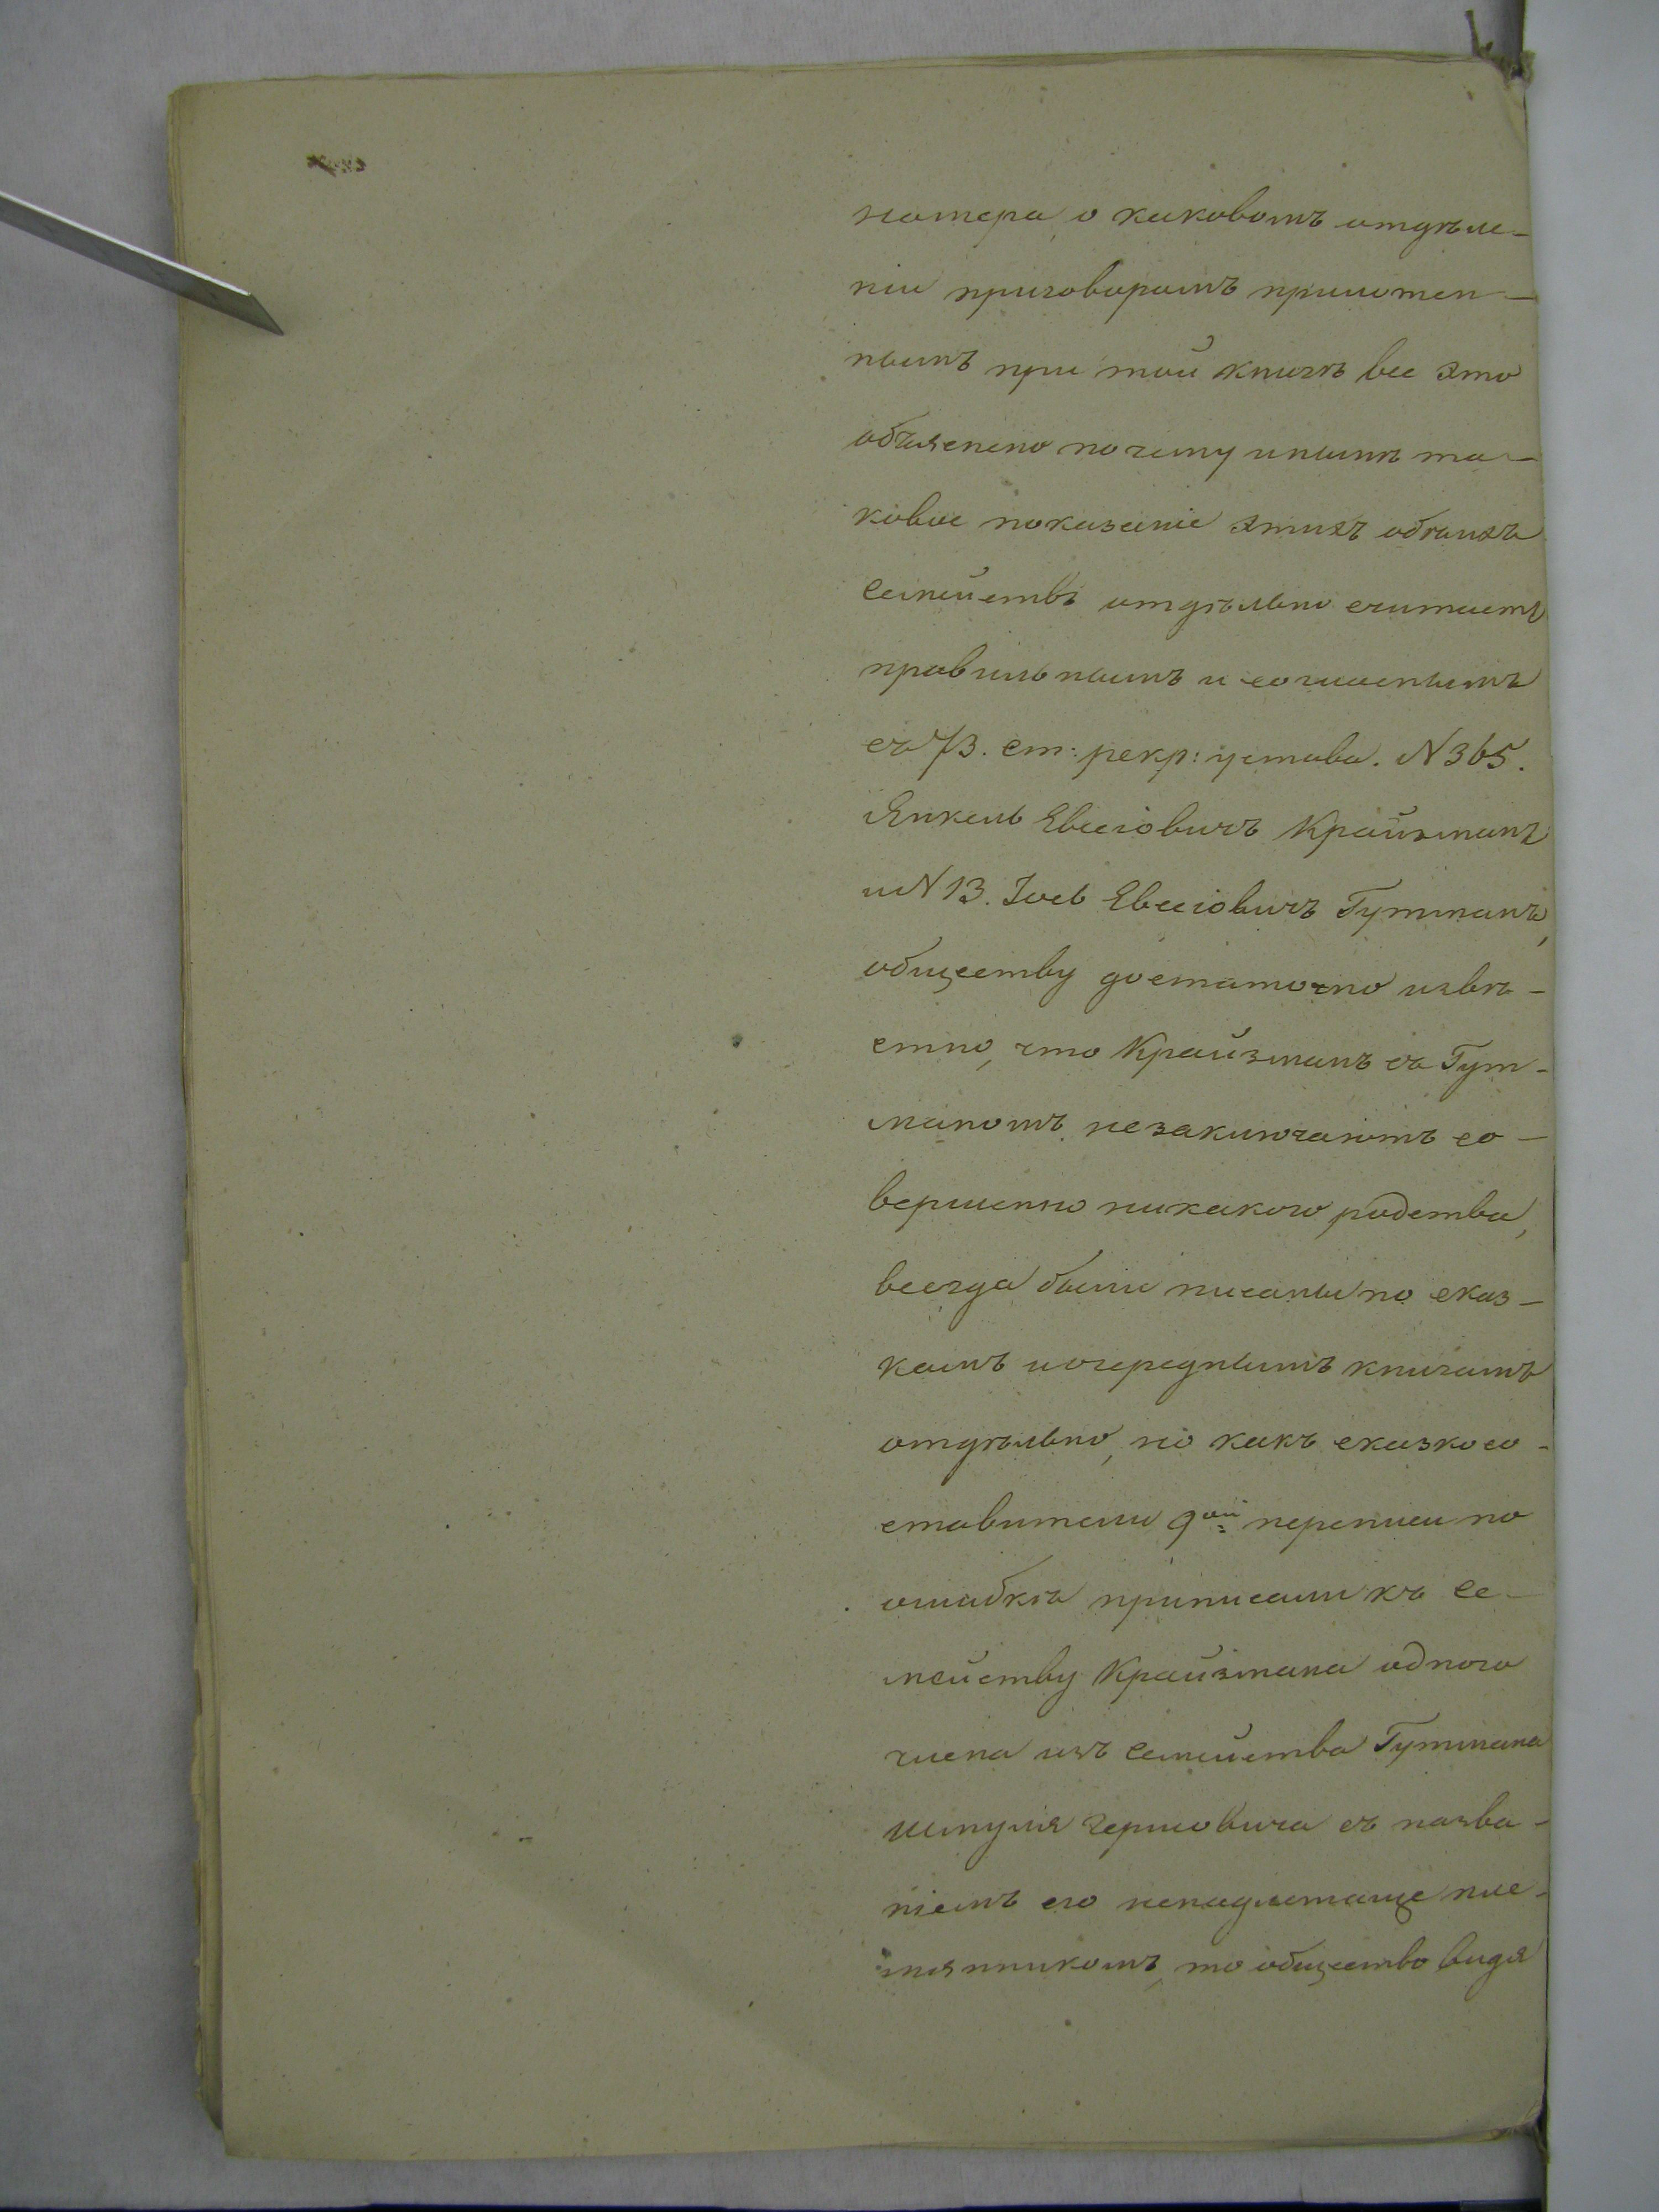 номера, о каковомъ отдѣле-
ніи приговоромъ приложен-
нымъ при той книгѣ все это
объяснено почему и нынѣ та-
ковое показаніе этихъ обоихъ
семействъ отдѣльно считаетъ
правильнымъ и согласнымъ
съ 73. ст: рекр: устава. N 365.
Янкель Евсіовичъ Крайзманъ
и N 13. Іось Евсіовичъ Гутманъ,
обществу достаточно извѣ-
стно, что Крайзманъ съ Гут-
маномъ незаключаютъ со-
вершенно никакого родства,
всегда были писаны по сказ-
камъ и очереднымъ книгамъ
отдѣльно, но какъ сказкосо-
ставители 9ой переписи по
ошибкѣ приписали къ се-
мейству Крайзмана одного
члена изъ семейства Гутмана
Шмуля Гершовича съ назва-
ніемъ его ненадлежаще пле-
мянникомъ, то общество видя